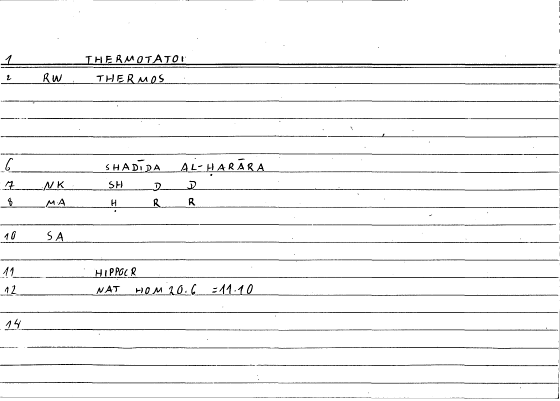 1 THERMOTATOI
2 RW THERMOS
6 SHADĪDA AL-ḤARĀRA
7 NK SH D D
8 MA Ḥ R R
10 SA
11 HIPPOCR
12 NAT HOM 20.6 =11.10
14